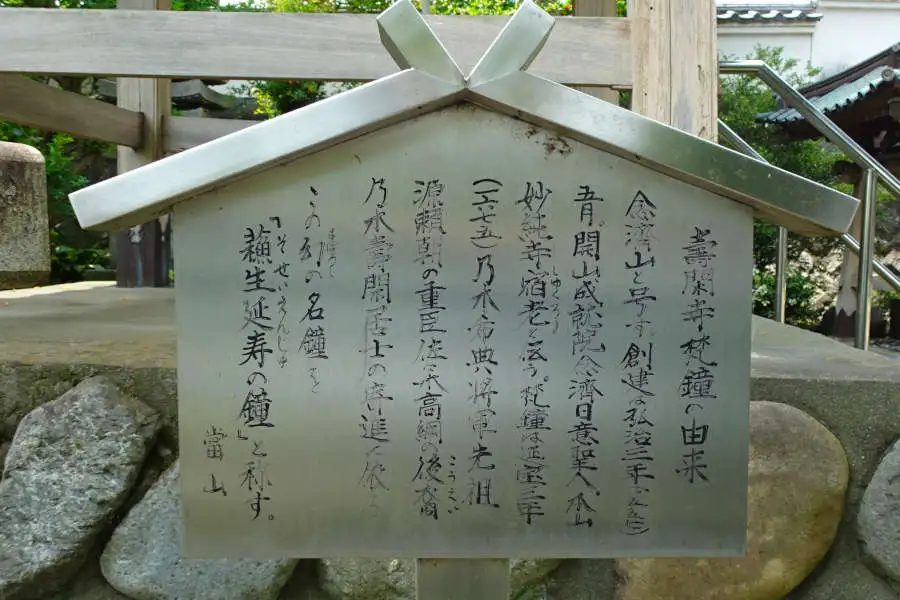 壽閑寺梵鐘の由来
念濟山と号す 創建は弘治三年(一五五七)
五月。開山成就院念濟日意聖人。本山
妙純寺宿老と云う。梵鐘は延宝三年
(一六七五)乃木希典将軍先祖
源頼朝の重臣佐々木高綱の後裔
こうえい
乃木壽閑居士の寄進に依る
この刻の名鐘を
『蘓生延寿の鐘』と称す。
そせいえんじゅ
當山